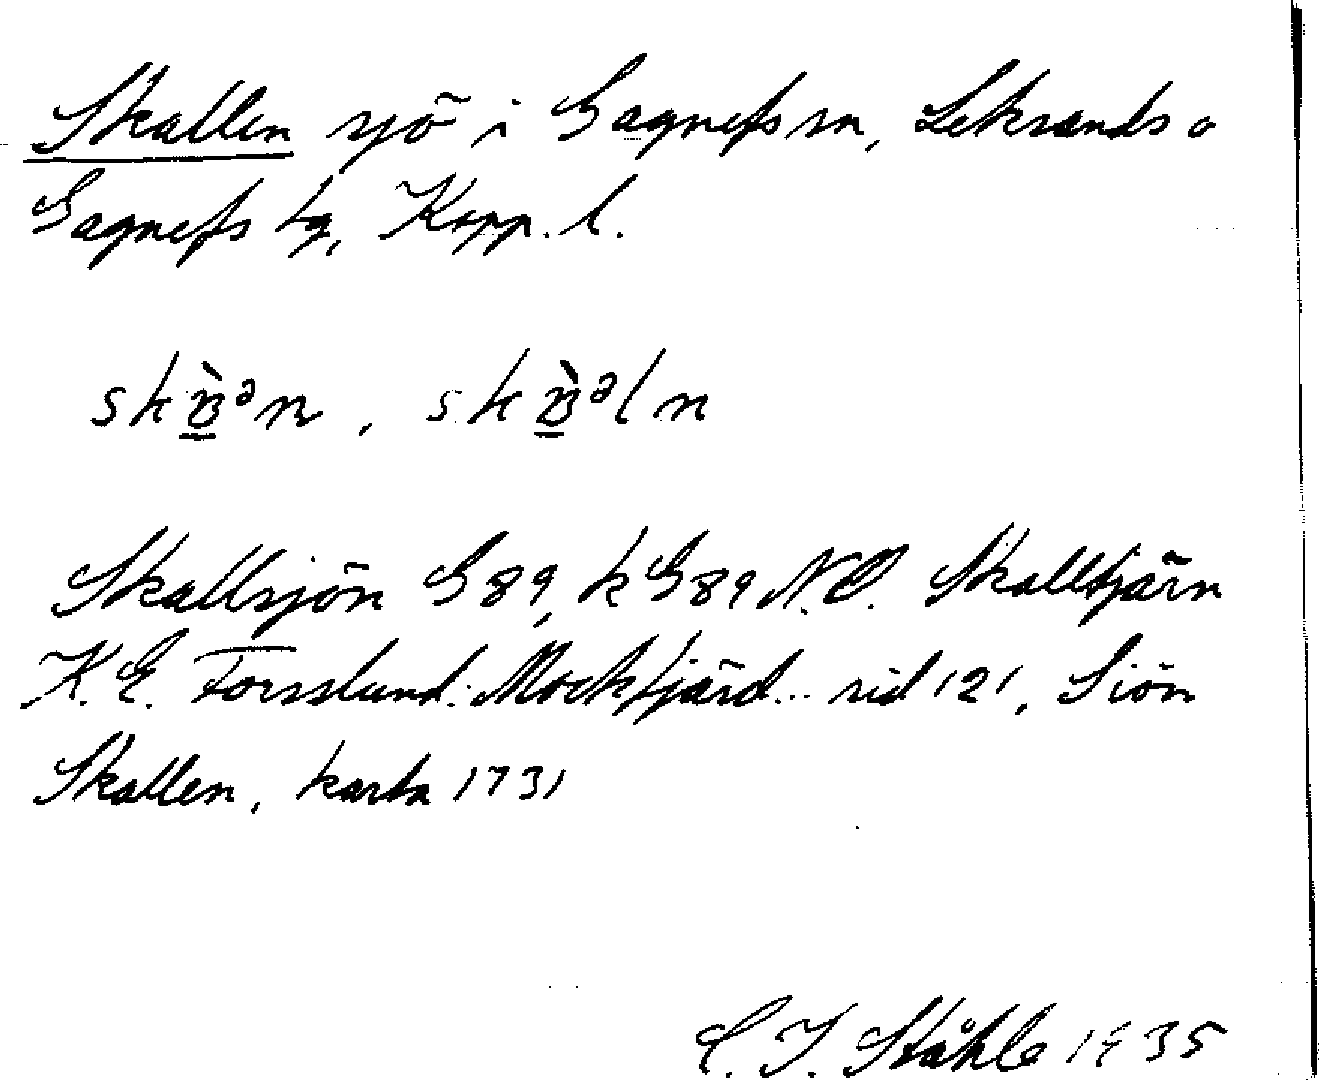 Skallen sjö i Gagnefs sn, Leksands o
Gagnefs tg, Kopp. l.
Skallsjön G89, k G89 N.O. Skalltjärn
K. E. Forsslund. Mockfjärd.. sid 121, Siön
Skallen, karta 1731
C. I. Ståhle 1935